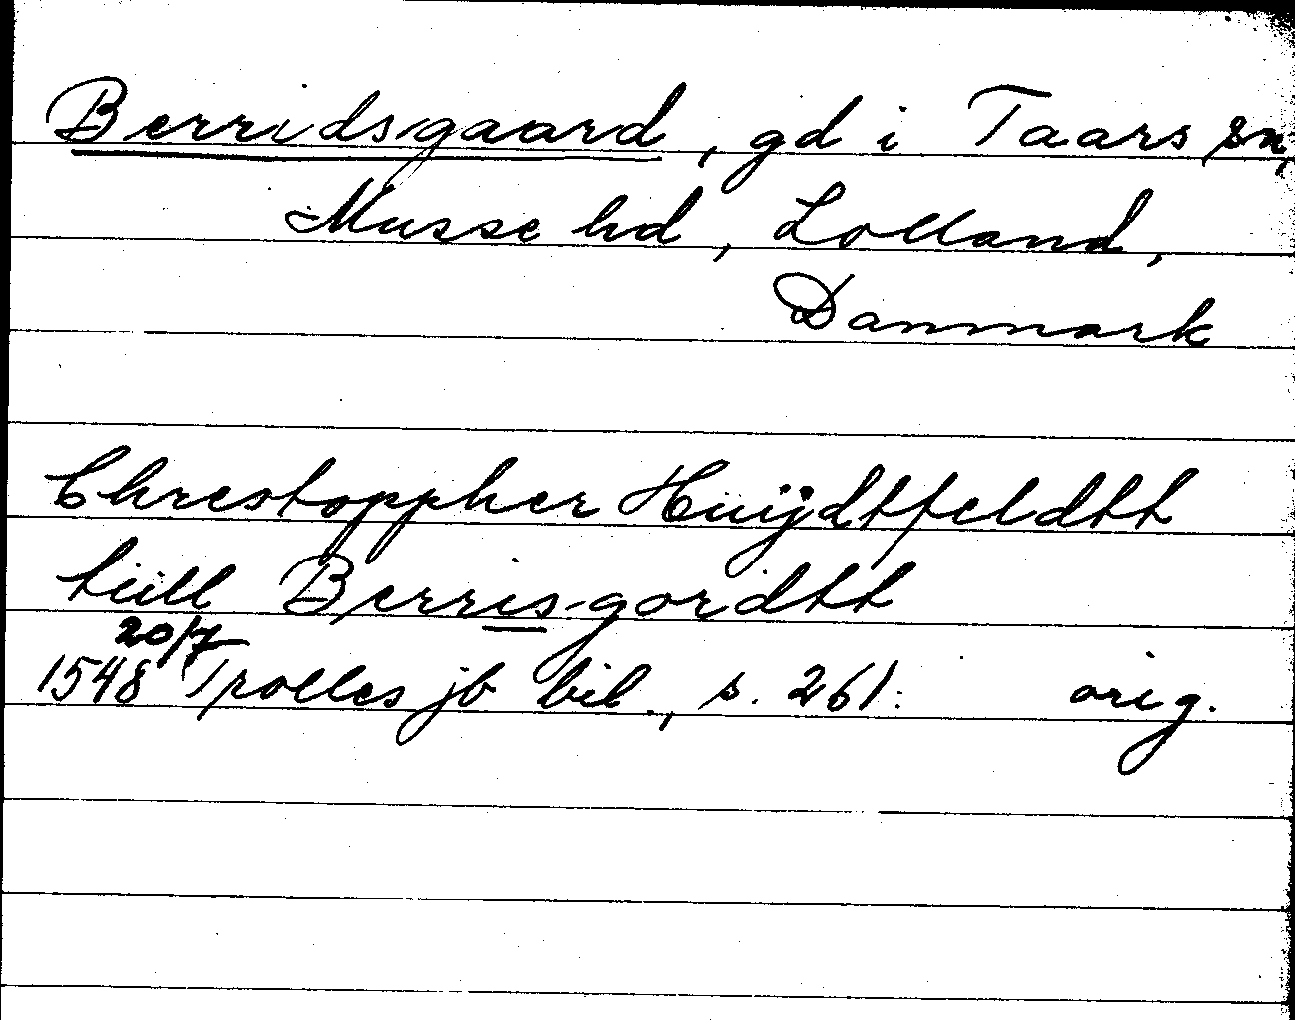 Berridsgaard, gd i Taars sn,
Musse hd, Lolland,
Danmark
Chrestoppher Hüijdtfeldtt
tüll Berrisgordtt
20/7
1548 Trolles jb bil., s. 261. orig.